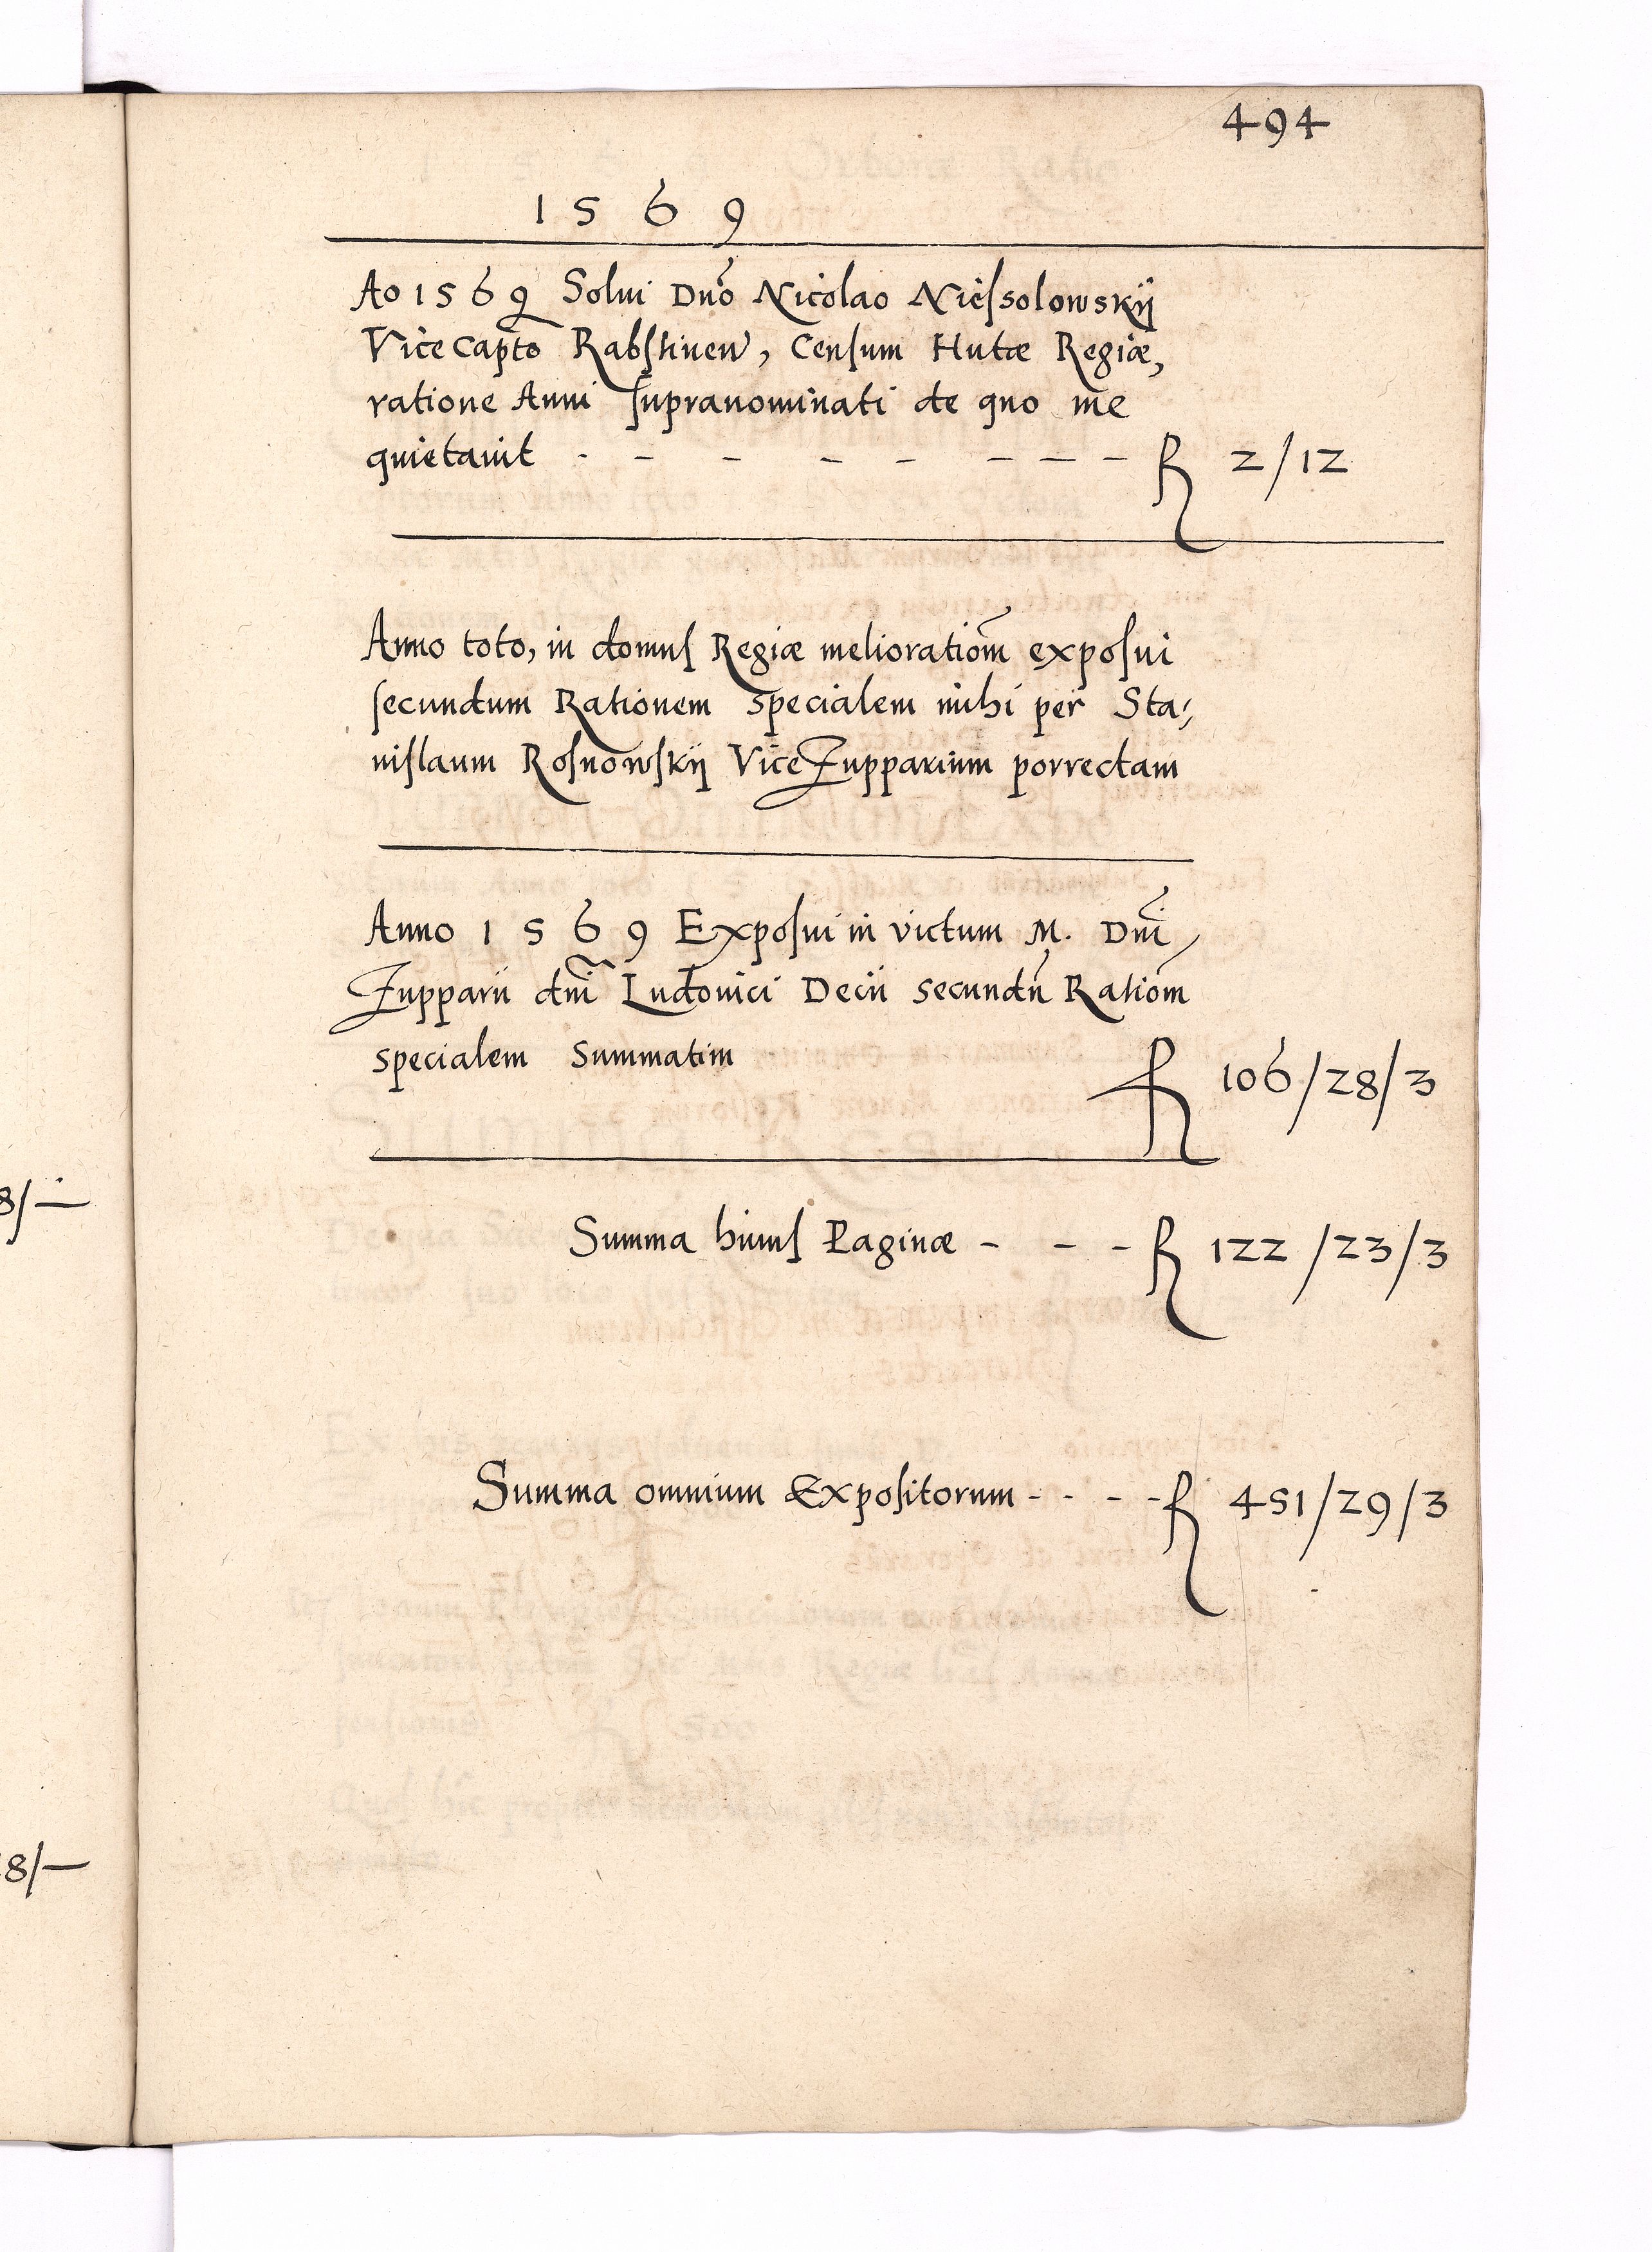 494
1569
Ao 1569 Solui Dno Nicolao Nieſsolowskÿ
Vice Capto Rabſtinen, Cenſum Hutæ Regiæ,
ratione Anni ſupranominati de quo me
quietauit - - - - - - - - - fl 2/12
Anno toto, in domuſ Regiæ melioratiom expoſui
ſecundum Rationem specialem mihi per Sta,
niſlaum Roſnowſkÿ Vice Zupparium porrectam
Anno 1569 Expoſui in victum M. Dni
Zupparii dni Ludouici Decii secundu Ratiom
specialem Summatim fl 106/28/3
Summa huiuſ Paginæ - - - fl 122/23/3
Summa omnium Expoſitorum - - - - fl 451/29/3
8/—
18/—